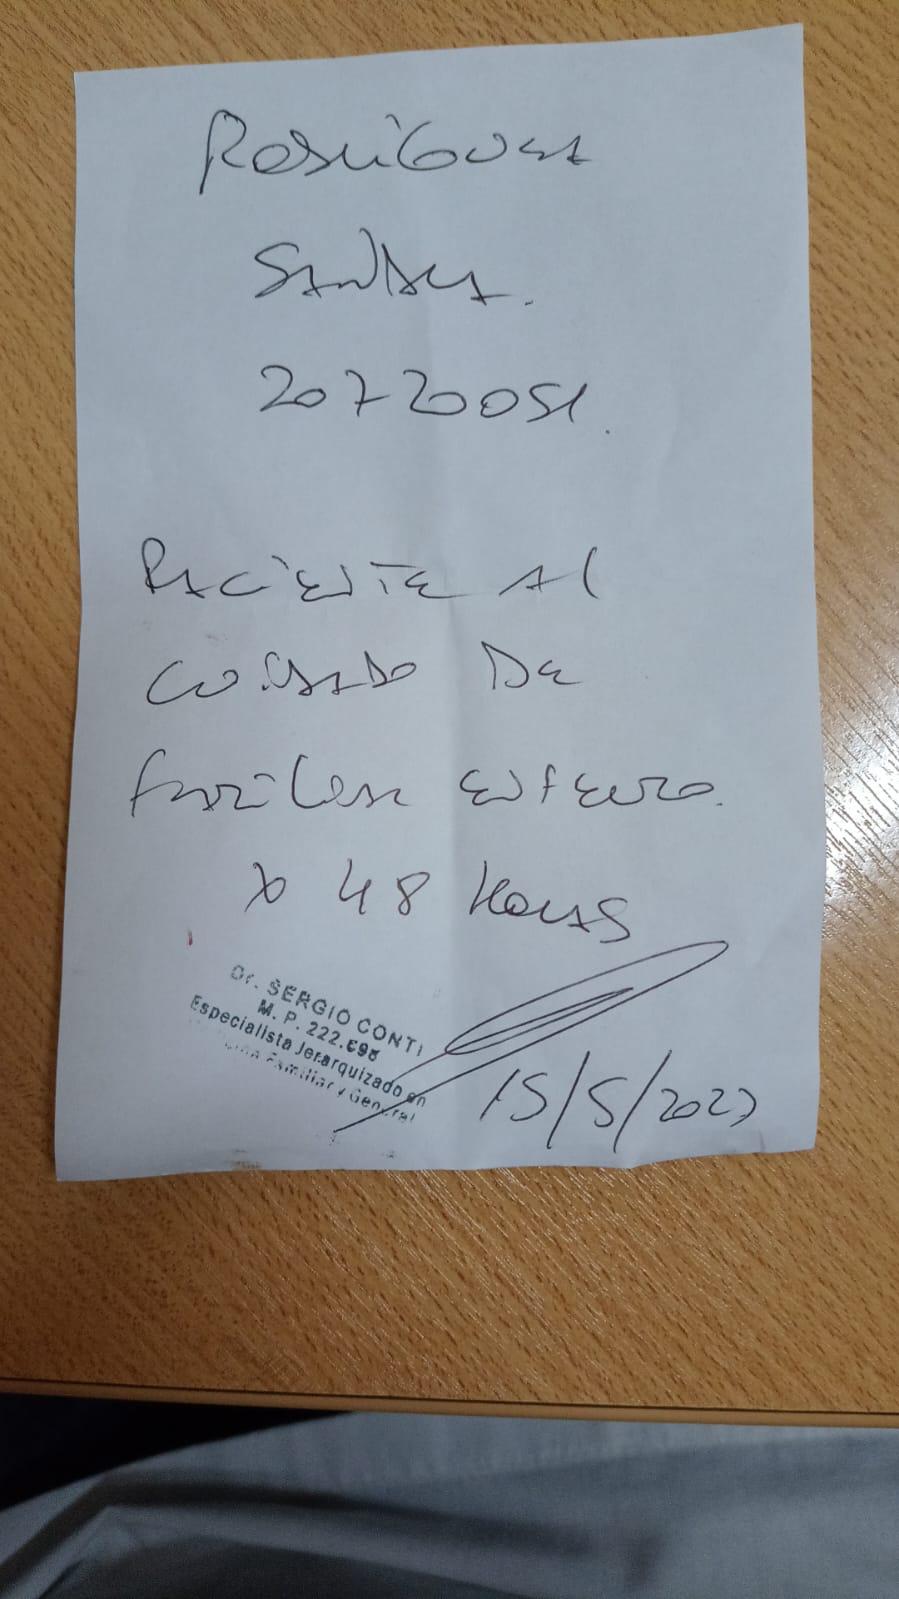 Rodriguez
Sandra.
20720051.
Paciente al
cuidado de
familiar enfermo.
x 48 horas
Dr. SERGIO CONTI
M. P. 222.
Especialista Jerarquizado en
Familiar y General
15/5/2023